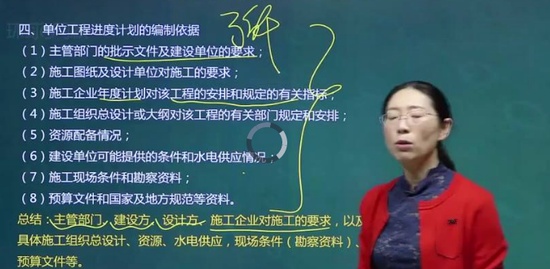 四、单位工程进度计划的编制依据
了解
（1）主管部门的批示文件及建设单位的要求；
（2）施工图纸及设计单位对施工的要求；
（3）施工企业年度计划对该工程的安排和规定的有关指标；
（4）施工组织总设计或大纲对该工程的有关部门规定和安排；
（5）资源配备情况；
（6）建设单位可能提供的条件和水电供应情况；
（7）施工现场条件和勘察资料；
（8）预算文件和国家及地方规范等资料。
总结：主管部门、建设方、设计方、施工企业对施工的要求，以及
具体施工组织总设计、资源、水电供应，现场条件（勘察资料）、
预算文件等。